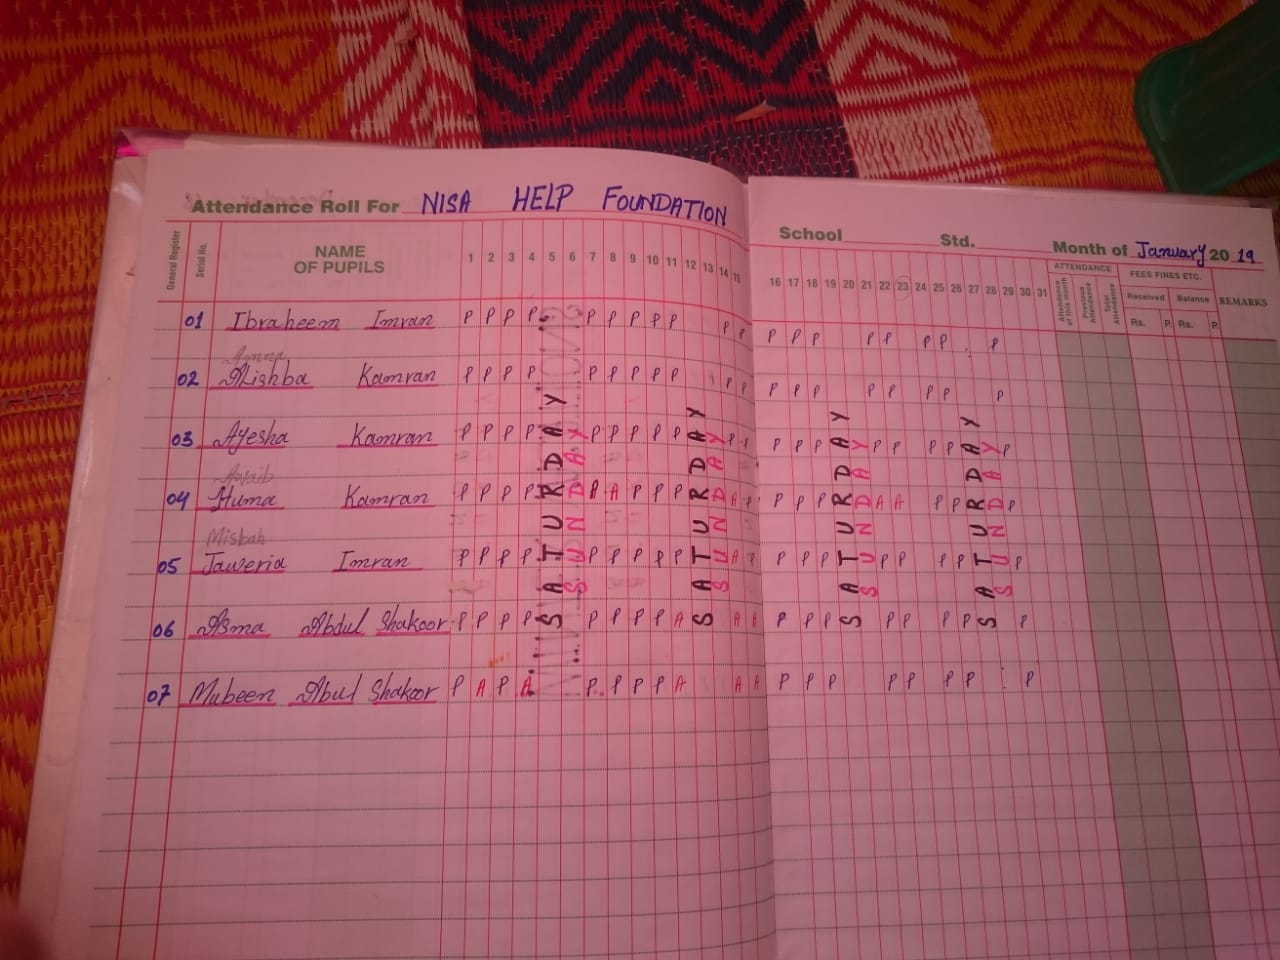 Attendance Roll For NISA HELP FOUNDATION
School Std. Month of January 20 19
General Register Serial No. NAME OF PUPILS 1 2 3 4 5 6 7 8 9 10 11 12 13 14 15 16 17 18 19 20 21 22 23 24 25 26 27 28 29 30 31 ATTENDANCE FEES FINES ETC. REMARKS
Attendance of this month Previous Attendance Total Attendance Received Balance
Rs. P. Rs. P.
01 Ibraheem Imran P P P P P P P P P P P P P P P P P P P
Amna
02 Mishba Kamran P P P P P P P P P P P P P P P P P P P
03 Ayesha Kamran P P P P P P P P P P P P P P P P P P P
04 Huma Kamran P P P P A A P P P A P P P P A A P P P
Misbah
05 Jaweria Imran P P P P P P P P P A P P P P P P P P P
06 Asma Abdul Shakoor P P P P P P P P A A A P P P P P P P P
07 Mubeen Abul Shakoor P A P A P P P P A A A P P P P P P P P
SATURDAY
SUNDAY
SATURDAY
SUNDAY
SATURDAY
SUNDAY
SATURDAY
SUNDAY